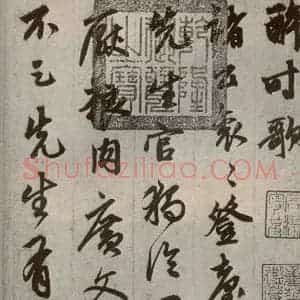 醉時歌
諸公袞〻登臺
先生官獨冷
厭粱肉廣文
不足先生有
Shufaziliao.com